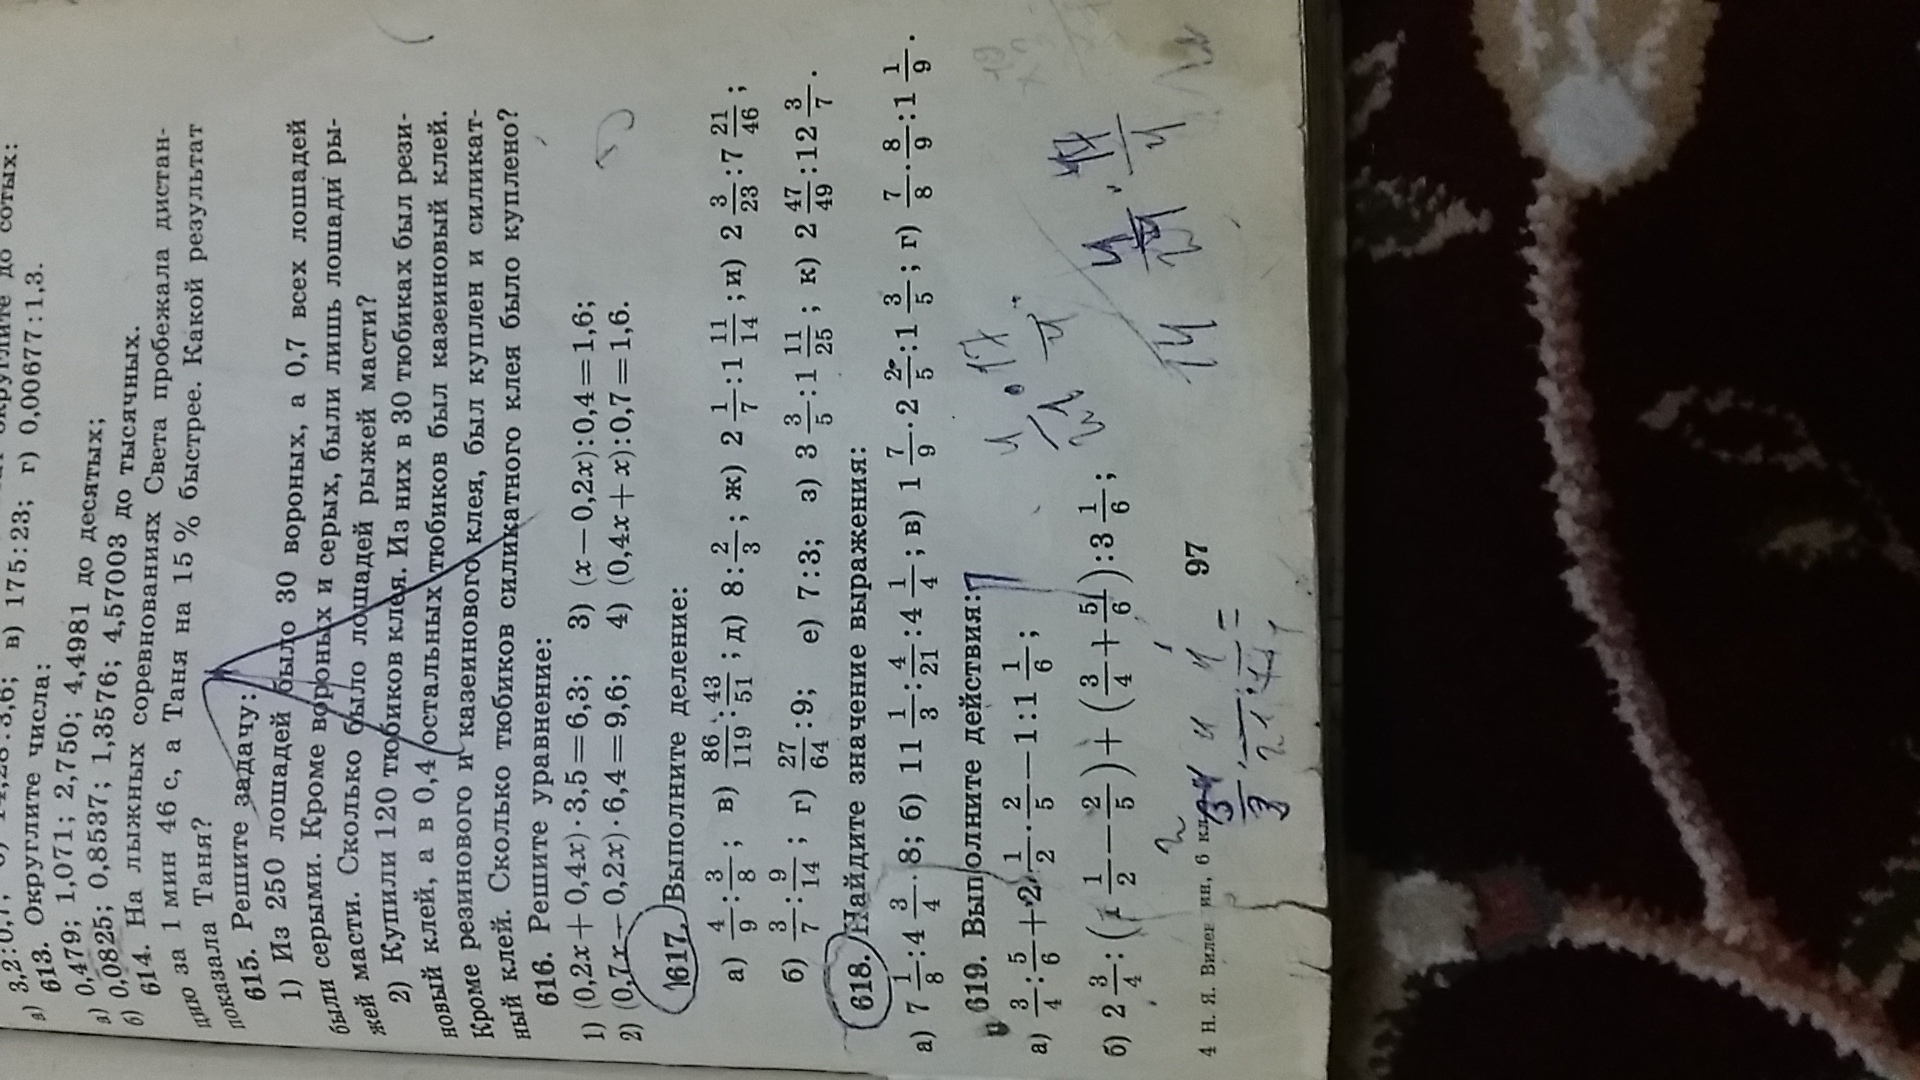 в) 175:23; г) 0,00677:1,3.
613. Округлите числа:
а) 0,479; 1,071; 2,750; 4,4981 до десятых;
б) 0,0825; 0,8537; 1,3576; 4,57003 до тысячных.
614. На лыжных соревнованиях Света пробежала дистан-
цию за 1 мин 46 с, а Таня на 15 % быстрее. Какой результат
показала Таня?
615. Решите задачу:
1) Из 250 лошадей было 30 вороных, а 0,7 всех лошадей
были серыми. Кроме вороных и серых, были лишь лошади ры-
жей масти. Сколько было лошадей рыжей масти?
2) Купили 120 тюбиков клея. Из них в 30 тюбиках был рези-
новый клей, а в 0,4 остальных тюбиков был казеиновый клей.
Кроме резинового и казеинового клея, был куплен и силикат-
ный клей. Сколько тюбиков силикатного клея было куплено?
616. Решите уравнение:
1) (0,2x + 0,4x) · 3,5 = 6,3; 3) (x − 0,2x) : 0,4 = 1,6;
2) (0,7x − 0,2x) · 6,4 = 9,6; 4) (0,4x + x) : 0,7 = 1,6.
617. Выполните деление:
а) 4/9 : 3/8; в) 86/119 : 43/51; д) 8 : 2/3; ж) 2 1/7 : 1 11/14; и) 2 3/23 : 7 21/46;
б) 3/7 : 9/14; г) 27/64 : 9; е) 7 : 3; з) 3 3/5 : 1 11/25; к) 2 47/49 : 12 3/7.
618. Найдите значение выражения:
а) 7 1/8 : 4 3/4 · 8; б) 11 1/3 : 4/21 : 4 1/4; в) 1 7/9 · 2 2/5 : 1 3/5; г) 7/8 · 8/9 : 1 1/9.
619. Выполните действия:
а) 3/4 : 5/6 + 2 1/2 · 2/5 − 1 : 1 1/6;
б) 2 3/4 : (1 1/2 − 2/5) + (3/4 + 5/6) : 3 1/6;
4 Н. Я. Виленкин, 6 кл.
97